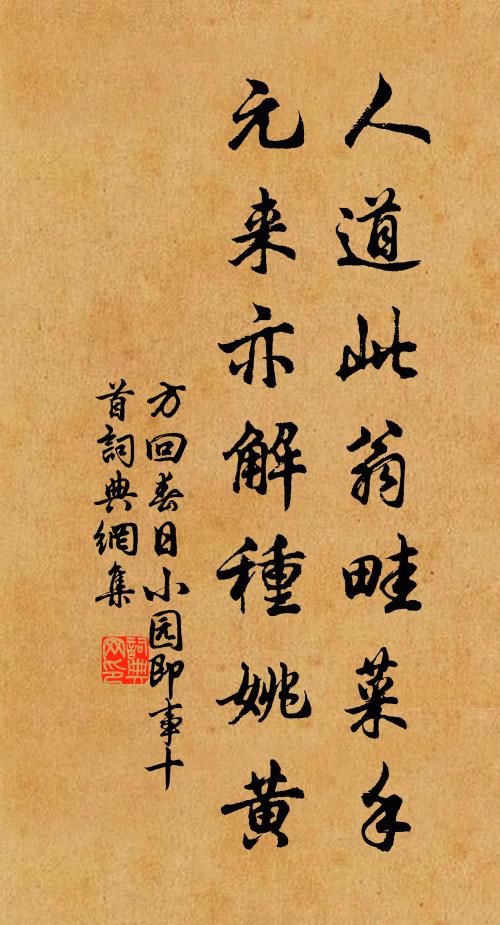 人道此翁畦菜手
元来亦解種姚黄
方回春日小园即事十
首詞典網集
詞典网印